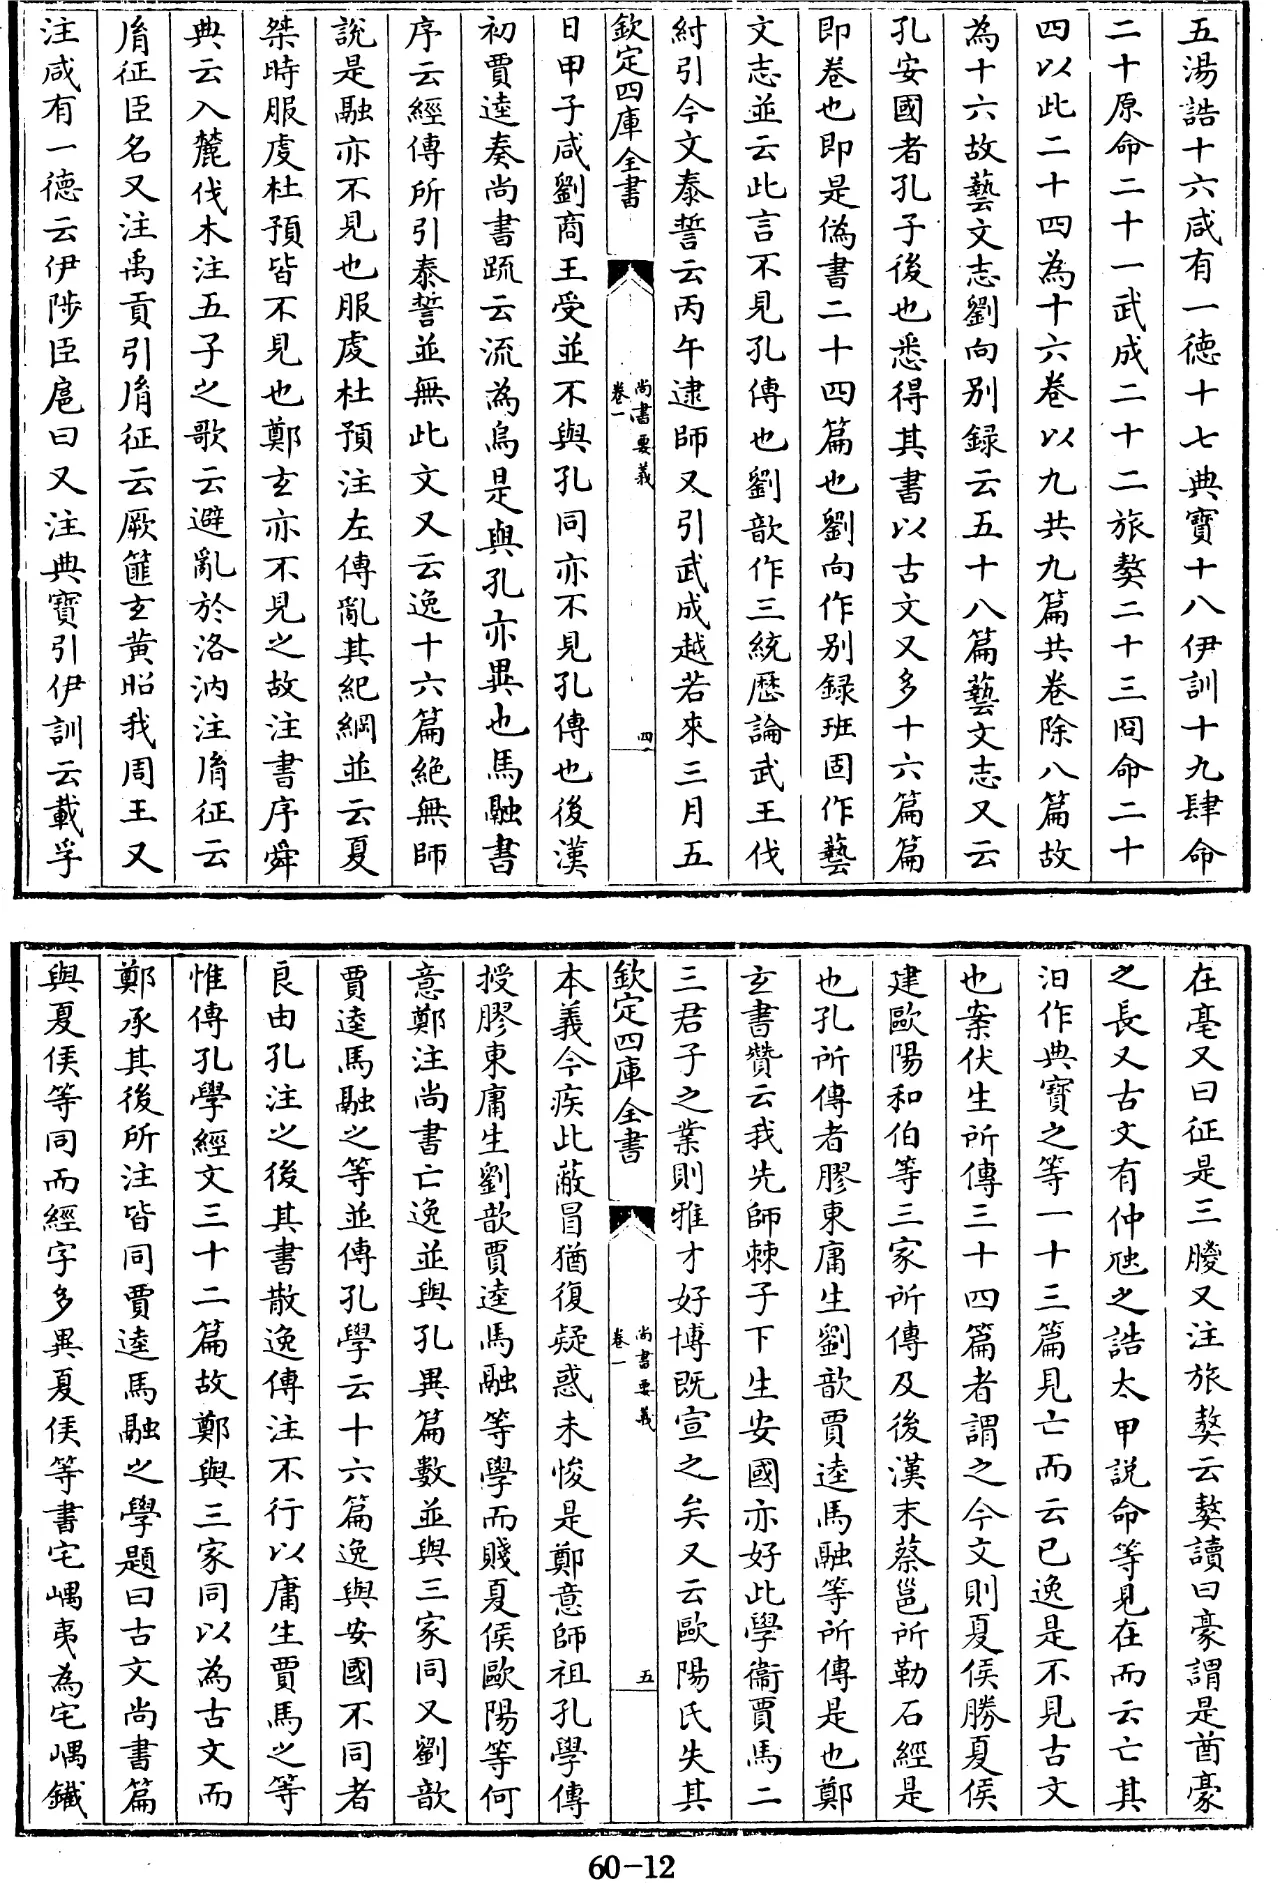 五湯誥十六咸有一德十七典寶十八伊訓十九肆命
二十原命二十一武成二十二旅獒二十三冏命二十
四以此二十四為十六卷以九共九篇共卷除八篇故
為十六故藝文志劉向别録云五十八篇藝文志又云
孔安國者孔子後也悉得其書以古文又多十六篇篇
即卷也即是偽書二十四篇也劉向作别録班固作藝
文志並云此言不見孔傳也劉歆作三統歴論武王伐
紂引今文泰誓云丙午逮師又引武成越若來三月五
欽定四庫全書
尚書要義
卷一
四
日甲子咸劉商王受並不與孔同亦不見孔傳也後漢
初賈逵奏尚書疏云流為烏是與孔亦異也馬融書
序云經傳所引泰誓並無此文又云逸十六篇絶無師
說是融亦不見也服虔杜預注左傳亂其紀綱並云夏
桀時服虔杜預皆不見也鄭玄亦不見之故注書序舜
典云入麓伐木注五子之歌云避亂於洛汭注胤征云
胤征臣名又注禹貢引胤征云厥篚玄黃昭我周王又
注咸有一德云伊陟臣扈曰又注典寶引伊訓云載孚
在亳又曰征是三朡又注旅獒云獒讀曰豪謂是酋豪
之長又古文有仲虺之誥太甲説命等見在而云亡其
汩作典寶之等一十三篇見亡而云已逸是不見古文
也案伏生所傳三十四篇者謂之今文則夏侯勝夏侯
建歐陽和伯等三家所傳及後漢末蔡邕所勒石經是
也孔所傳者膠東庸生劉歆賈逵馬融等所傳是也鄭
玄書贊云我先師棘子下生安國亦好此學衞賈馬二
三君子之業則雅才好博既宣之矣又云歐陽氏失其
欽定四庫全書
尚書要義
卷一
五
本義今疾此蔽冒猶復疑惑未悛是鄭意師祖孔學傳
授膠東庸生劉歆賈逵馬融等學而賤夏侯歐陽等何
意鄭注尚書亡逸並與孔異篇數並與三家同又劉歆
賈逵馬融之等並傳孔學云十六篇逸與安國不同者
良由孔注之後其書散逸傳注不行以庸生賈馬之等
惟傳孔學經文三十二篇故鄭與三家同以為古文而
鄭承其後所注皆同賈逵馬融之學題曰古文尚書篇
與夏侯等同而經字多異夏侯等書宅嵎夷為宅嵎鐵
60-12